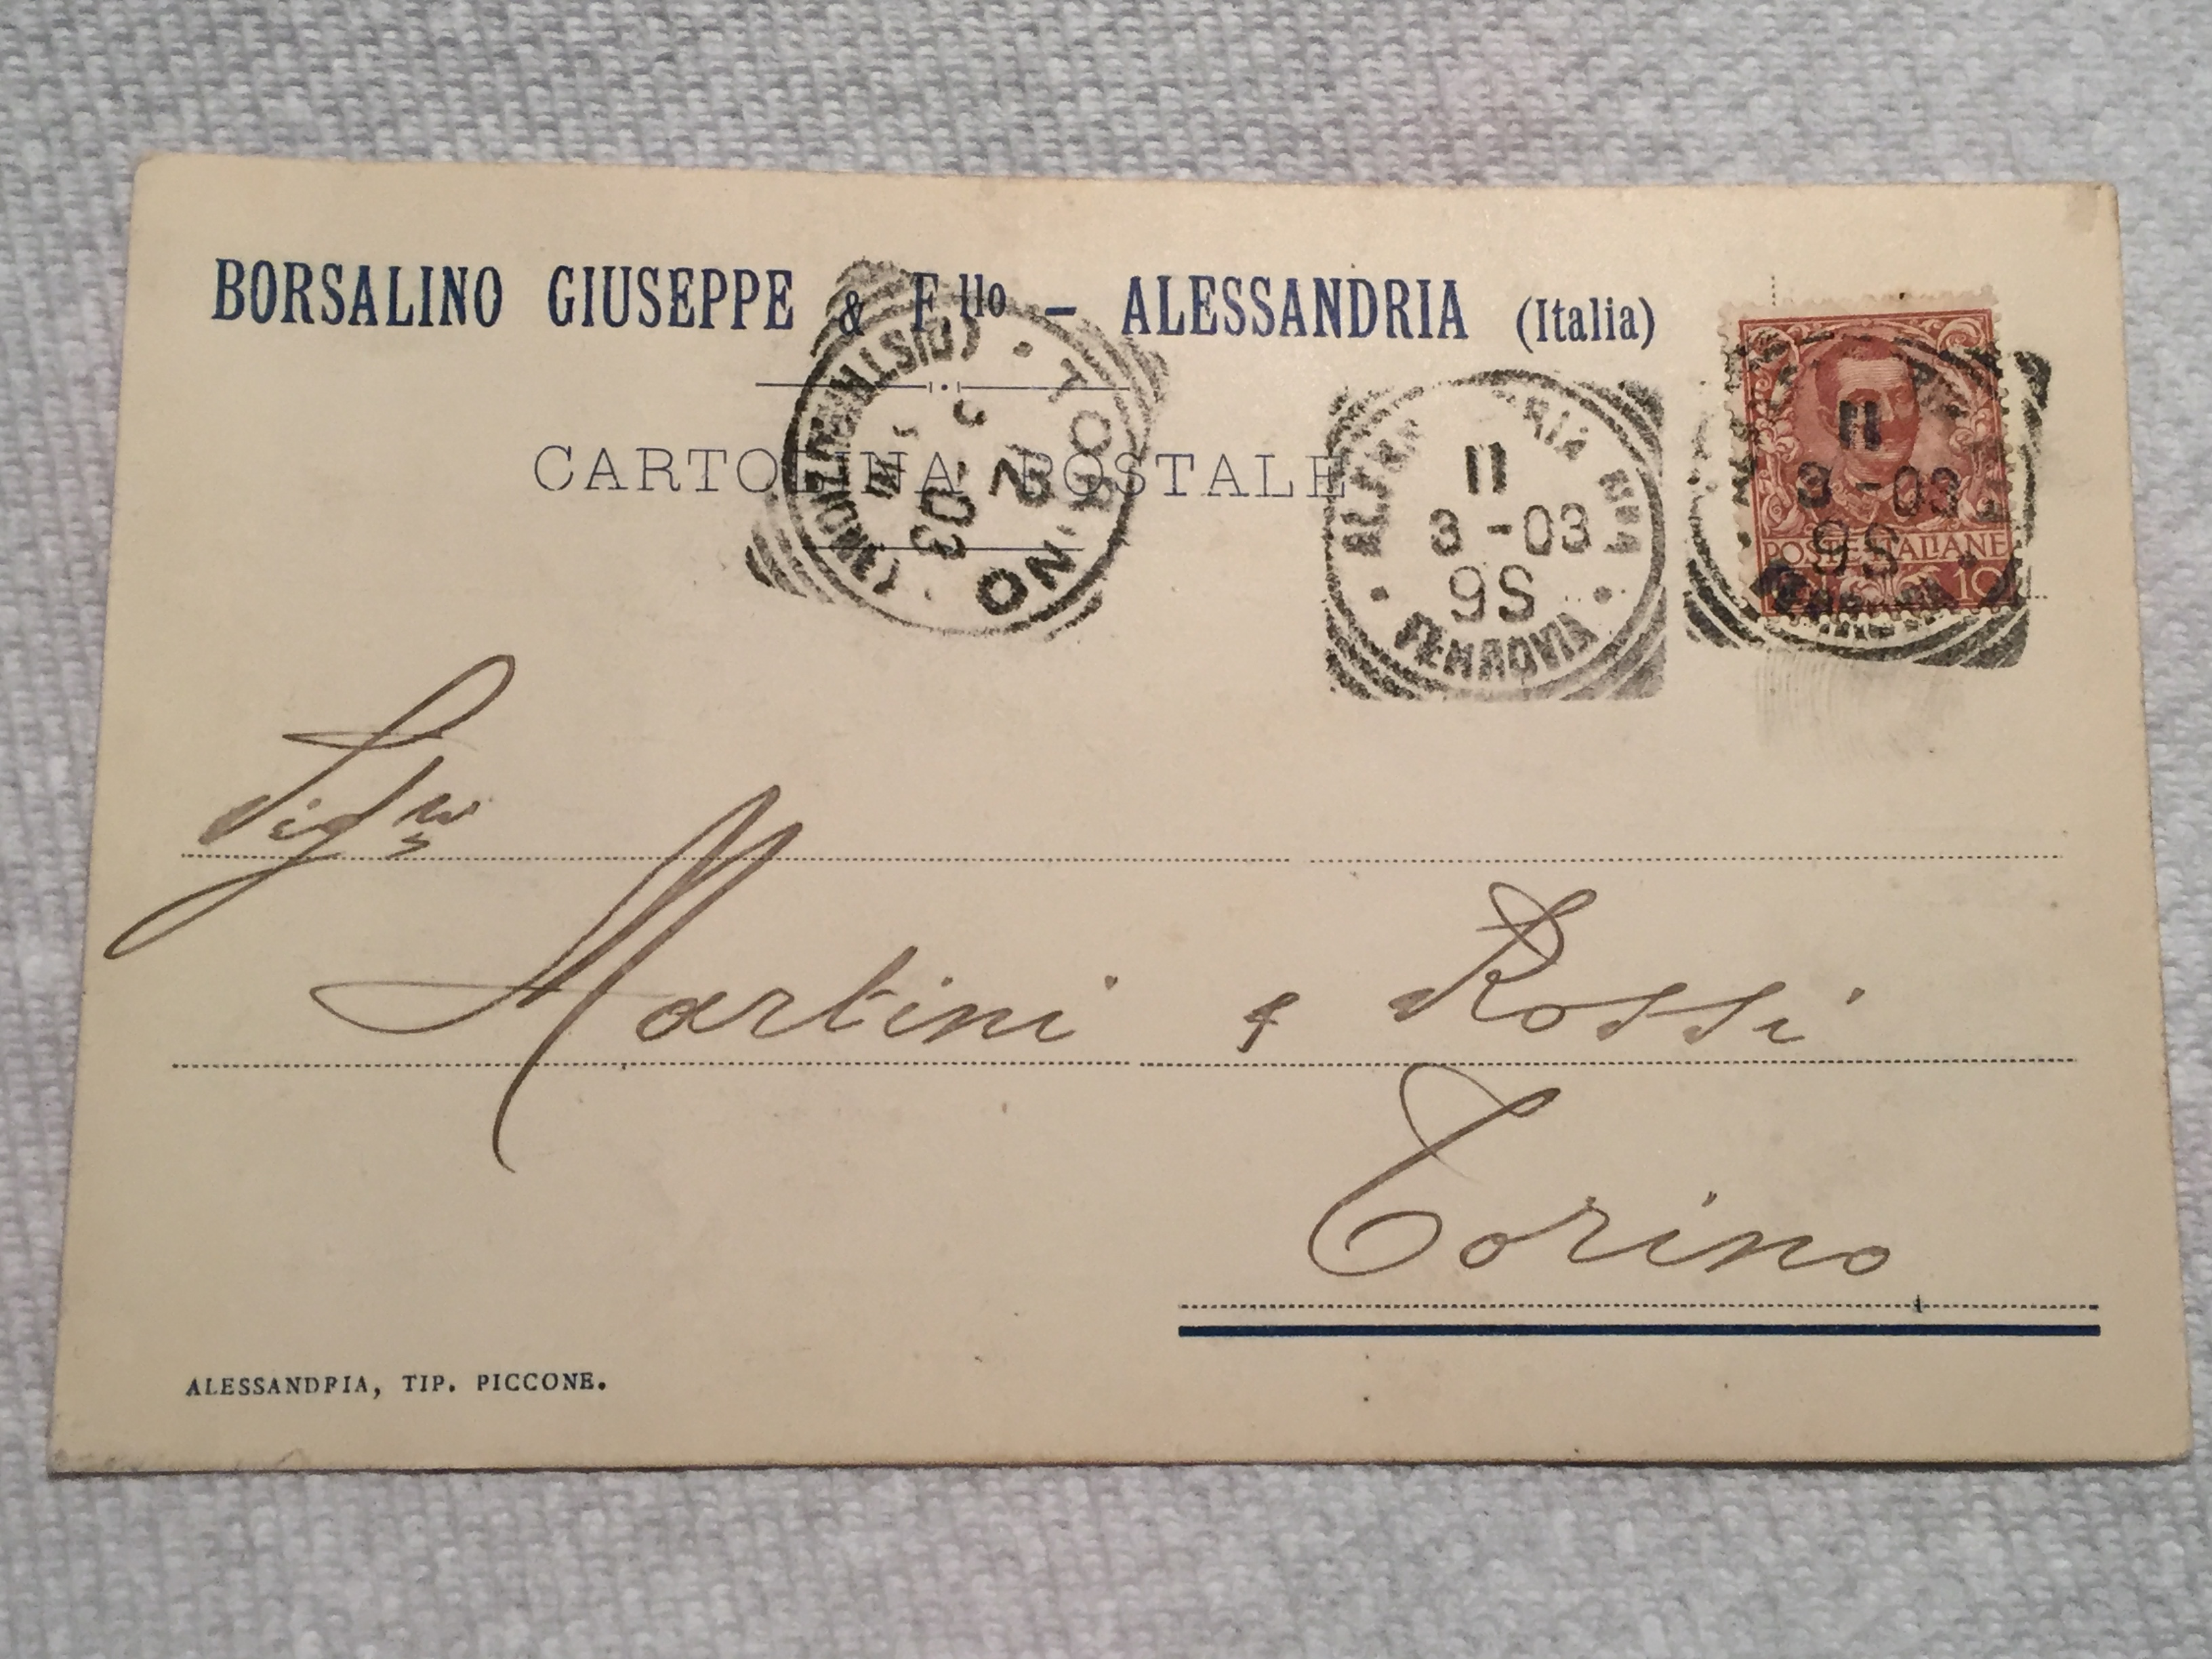 BORSALINO GIUSEPPE & Fllo - ALESSANDRIA (Italia)
CARTOLINA POSTALE
TORINO
(DISTRIBUZIONE)
03
11
3 - 03
9S
FERROVIA
11
3 - 03
9S
POSTE ITALIANE
10
Sigri
Martini & Rossi
Torino
ALESSANDRIA, TIP. PICCONE.